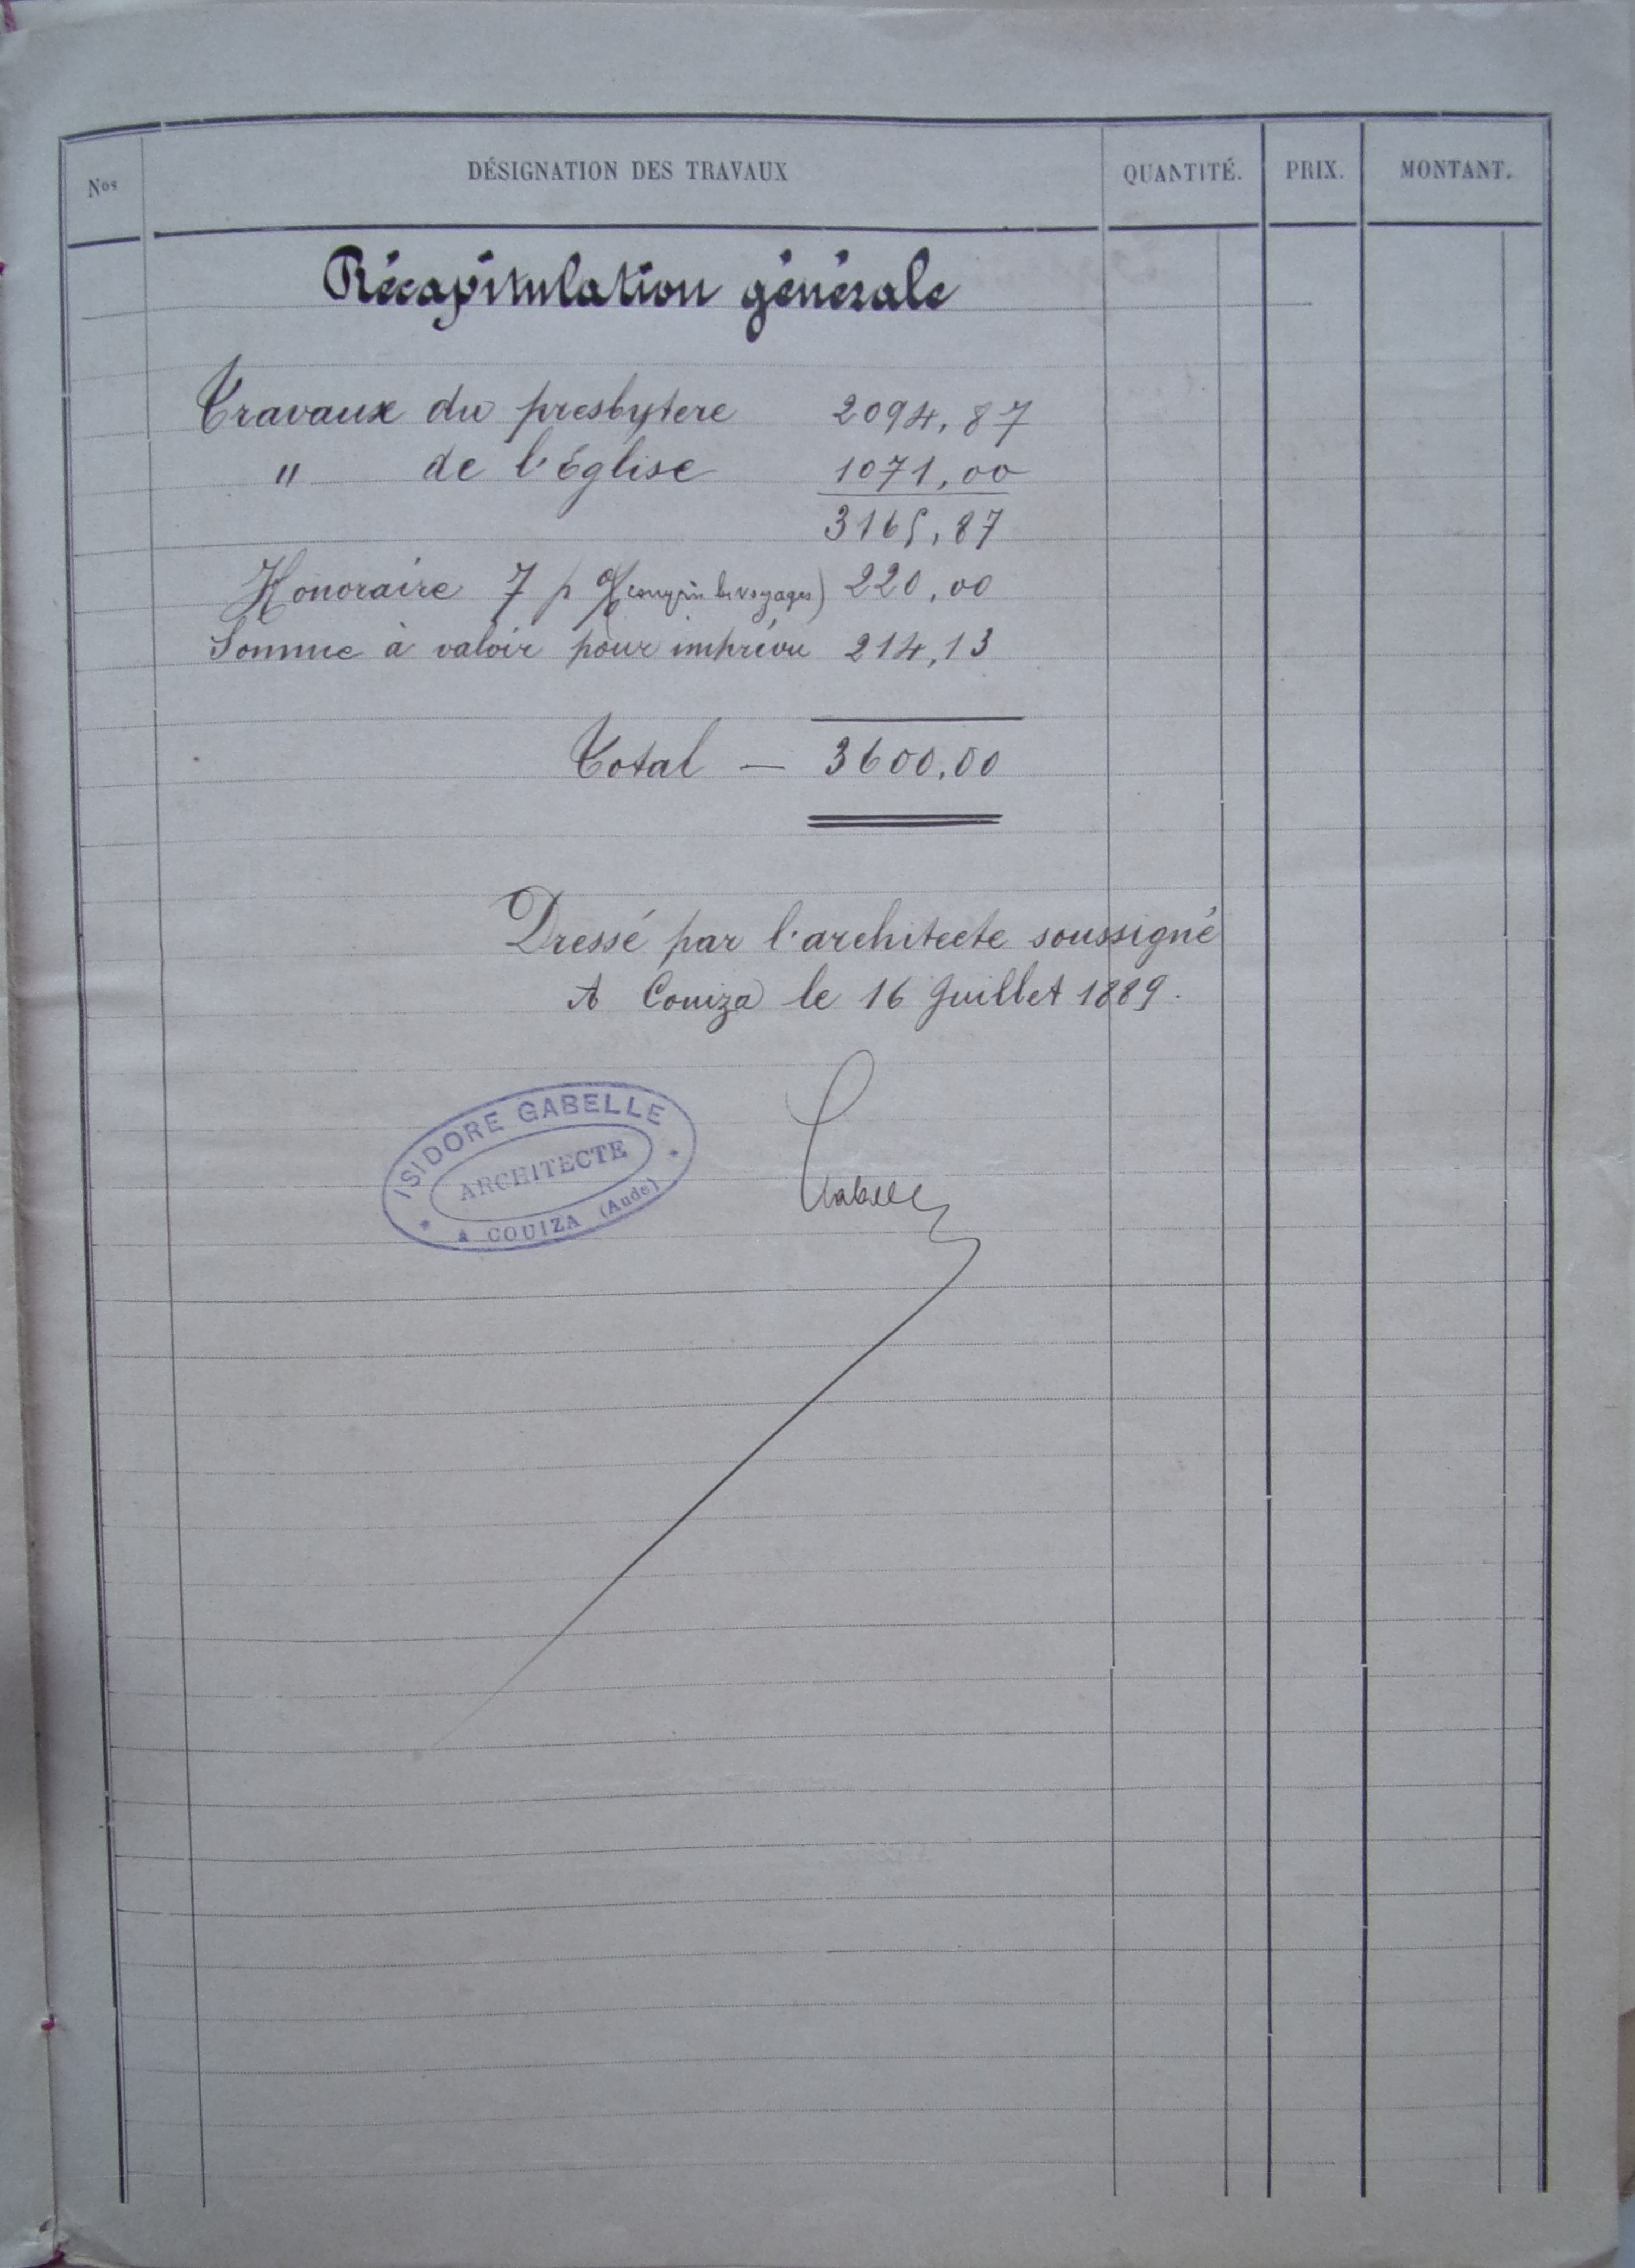 Nos DÉSIGNATION DES TRAVAUX QUANTITÉ. PRIX. MONTANT.
Récapitulation générale
Travaux du presbytere 2094,87
" de l'Église 1071,00
3165,87
Honoraire 7 p % (compris les voyages) 220,00
Somme à valoir pour imprévu 214,13
Total — 3600,00
Dressé par l'architecte soussigné
A Couiza le 16 Juillet 1889.
ISIDORE GABELLE
ARCHITECTE
à COUIZA (Aude)
Gabelle